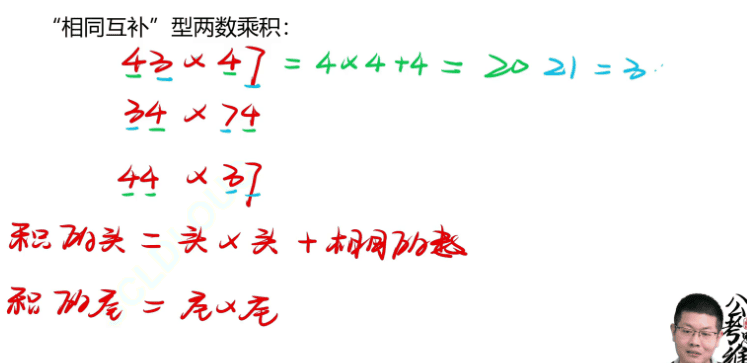 “相同互补”型两数乘积：
43 × 47 = 4×4+4 = 20 21 = 3
34 × 74
44 × 37
积的头 = 头 × 头 + 相同的数
积的尾 = 尾 × 尾
公考